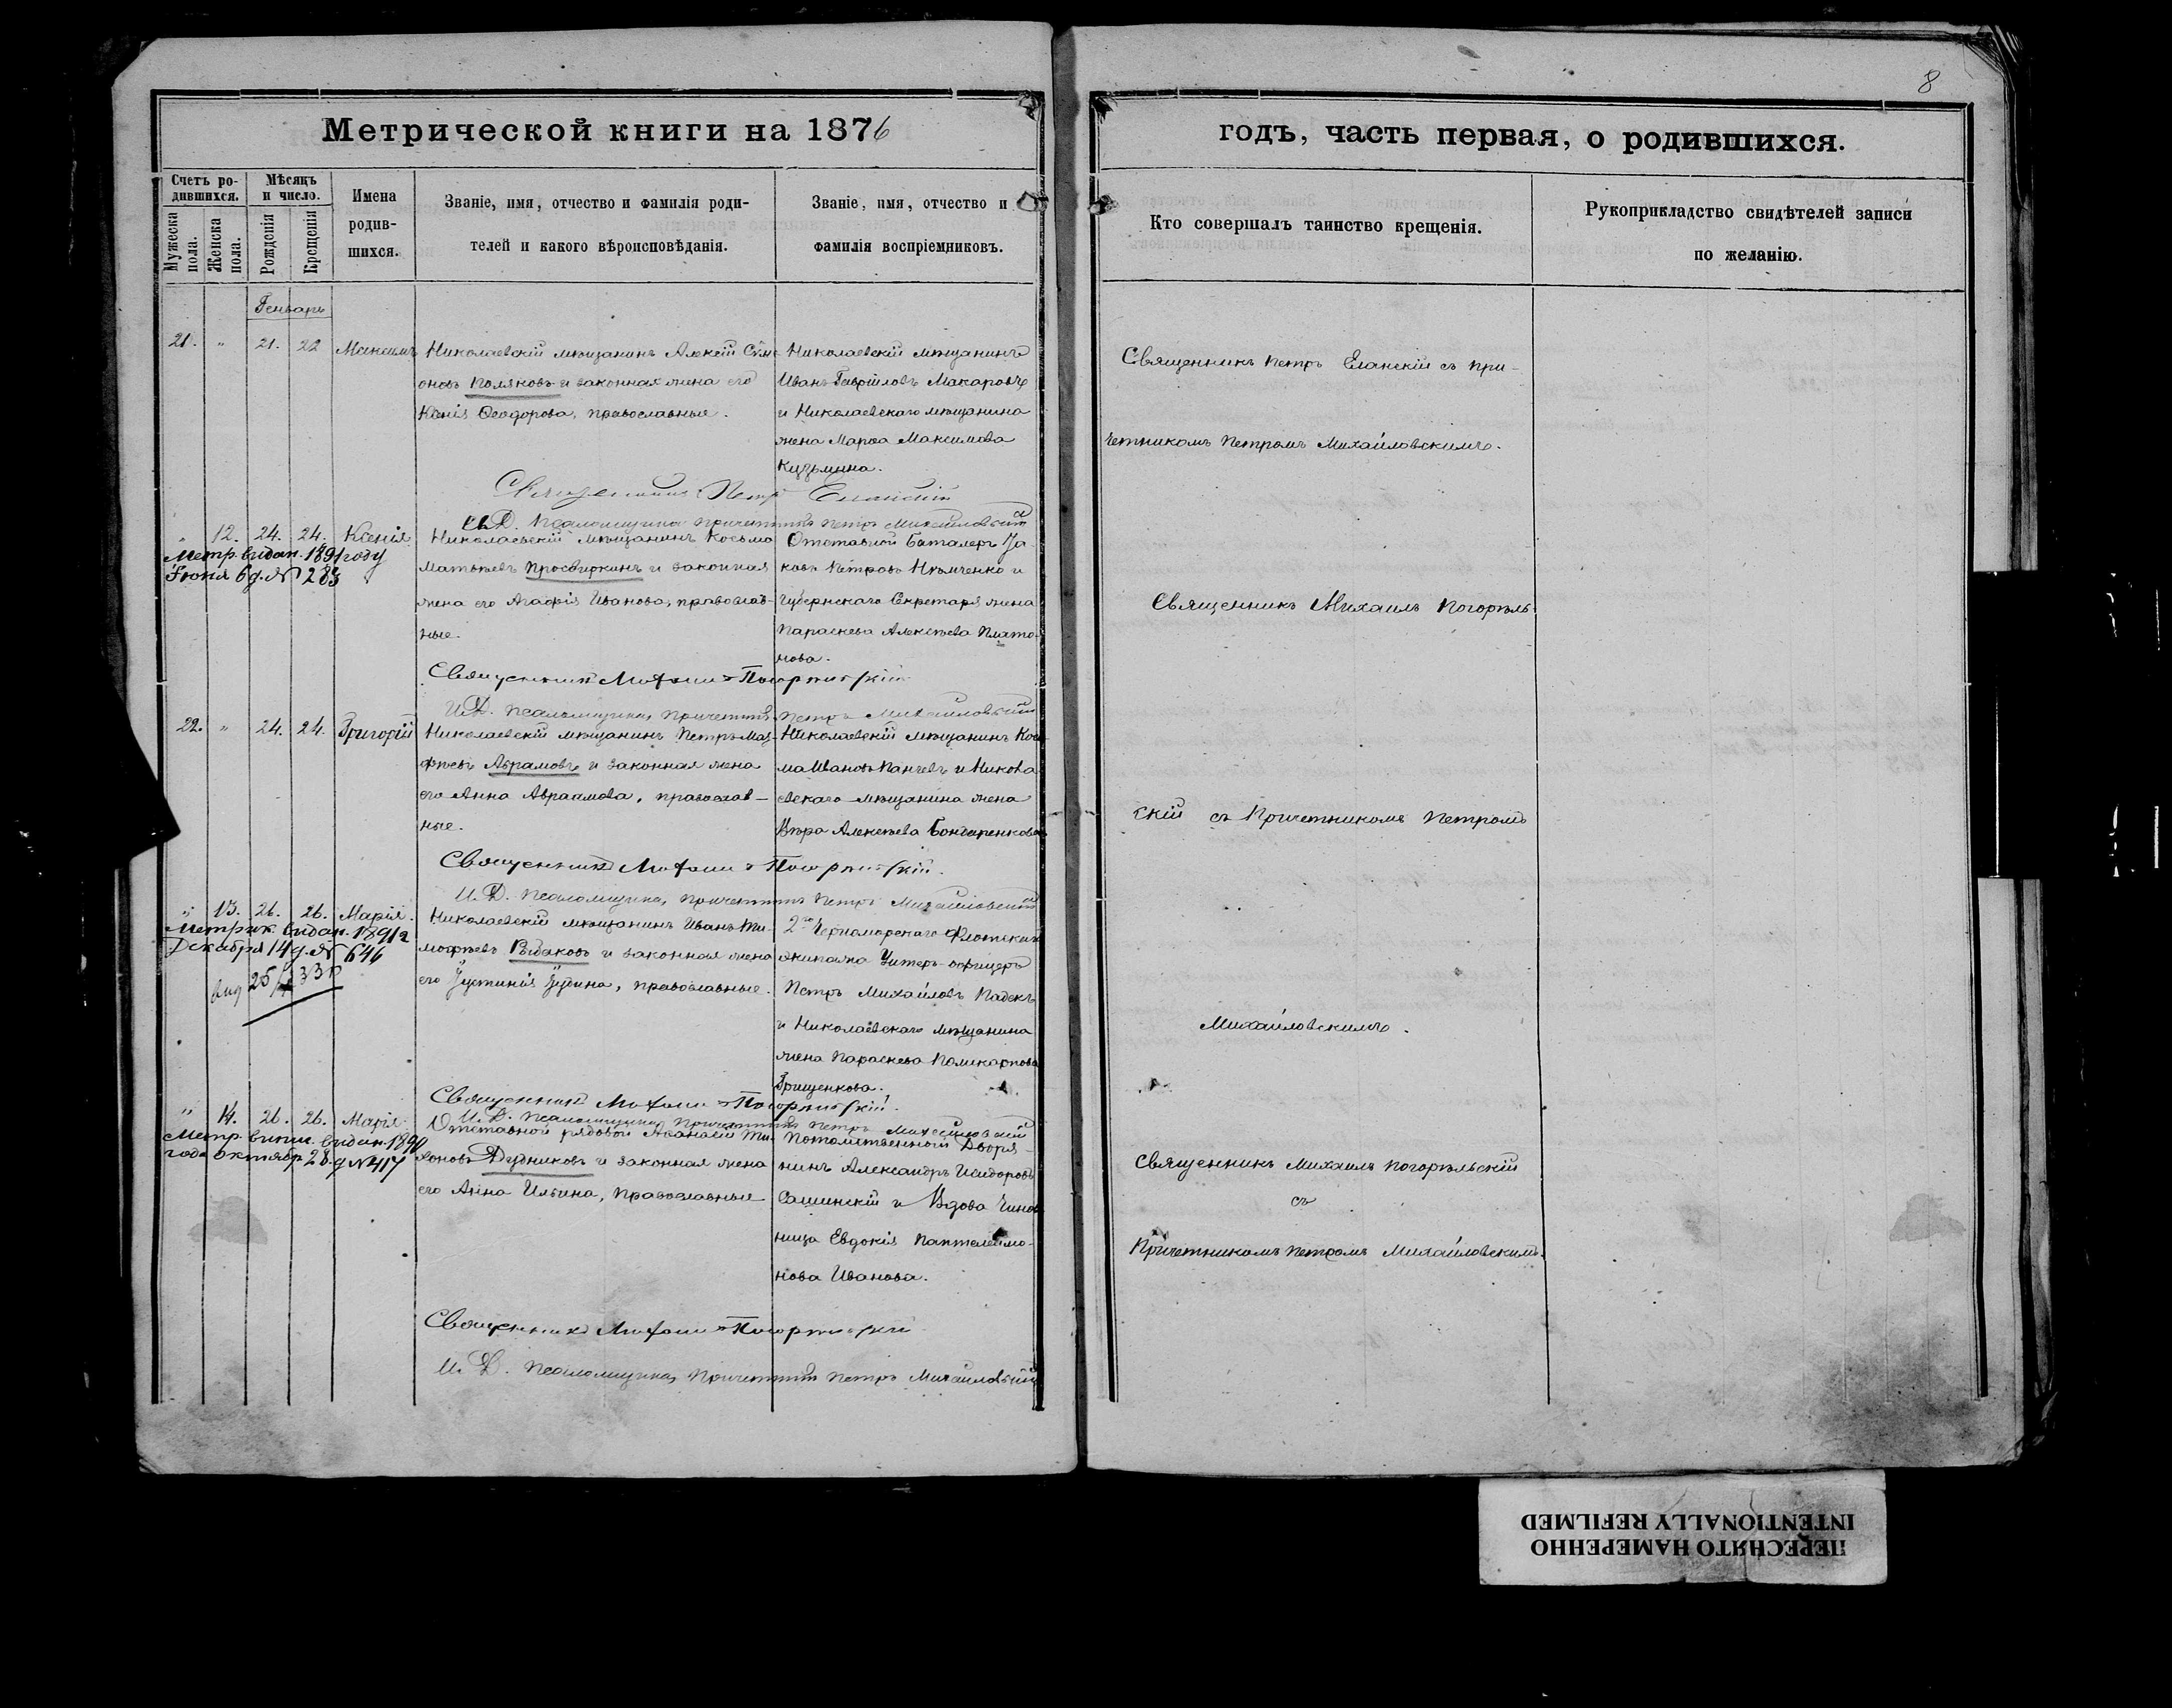 8
Метрической книги на 1876
годъ, часть первая, о родившихся.
Счетъ ро-
дившихся.
Мѣсяцъ
и число.
Мужеска
пола.
Женска
пола.
Рожденія
Крещенія
Имена
родив-
шихся.
Званіе, имя, отчество и фамилія роди-
телей и какого вѣроисповѣданія.
Званіе, имя, отчество и
фамилія воспріемниковъ.
Кто совершалъ таинство крещенія.
Рукоприкладство свидѣтелей записи
по желанію.
Генварь
21. " 21. 22 Максимъ
Николаевскій мѣщанинъ Алексій Сѵме-
оновъ Поляковъ и законная жена его
Ксенія Ѳеодорова, православные.
Николаевскій мѣщанинъ
Иванъ Гавріиловъ Макаровъ
и Николаевскаго мѣщанина
жена Марѳа Максимова
Кузьмина.
Священникъ Петръ Еланскій съ при-
четникомъ Петромъ Михайловскимъ.
Священникъ Петръ Еланскій
И.Д. Псаломщика Причетникъ Петръ Михайловскій
" 12. 24. 24. Ксенія
Метр. видан. 1891 году
Іюня 6 д. № 283
Николаевскій мѣщанинъ Косьма
Матвѣевъ Просвиркинъ и законная
жена его Агафія Иванова, православ-
ные.
Отставной Баталеръ Іа-
ковъ Петровъ Нѣмченко и
Губернскаго Секретаря жена
Параскева Алексѣева Плато-
нова.
Священникъ Михаилъ Погорѣль-
Священникъ Михаилъ Погорѣльскій
И.Д. Псаломщика Причетникъ Петръ Михайловскій
22. " 24. 24. Григорій
Николаевскій мѣщанинъ Петръ Мат-
фѣевъ Абрамовъ и законная жена
его Анна Авраамова, православ-
ные.
Николаевскій мѣщанинъ Кось-
ма Ивановъ Панчевъ и Никола-
евскаго мѣщанина жена
Вѣра Алексѣева Бондаренкова
скій съ Причетникомъ Петромъ
Священникъ Михаилъ Погорѣльскій.
И.Д. Псаломщика, Причетникъ Петръ Михайловскій
" 13. 26. 26. Марія.
Метрик. видан. 1891 г
Декабря 14 д. № 646
Николаевскій мѣщанинъ Иванъ Ти-
мофѣевъ Рыбаковъ и законная жена
его Іустинія Іудина, православные.
2го Черноморскаго Флотскаго
экипажа Унтеръ-офицеръ
Петръ Михайловъ Падекъ
и Николаевскаго мѣщанина
жена Параскева Поликарпова
Грищенкова.
Михайловскимъ.
Священникъ Михаилъ Погорѣльскій.
И.Д. Псаломщика Причетникъ Петръ Михайловскій
" 14. 26. 26. Марія
Метр. выпис. видан. 1890
года Октябр. 28 д № 417
Отставной рядовой Аѳанасій Ти-
хоновъ Дудниковъ и законная жена
его Анна Ильина, Православные
Потомственный Дворя-
нинъ Александръ Исидоровъ
Сашинскій и Вдова Чинов-
ница Евдокія Пантелеимо-
нова Иванова.
Священникъ Михаилъ Погорѣльскій
съ
Причетникомъ Петромъ Михайловскимъ.
Священникъ Михаилъ Погорѣльскій
И.Д. Псаломщика, Причетникъ Петръ Михайловскій
ПЕРЕСНЯТО НАМЕРЕННО
INTENTIONALLY REFILMED